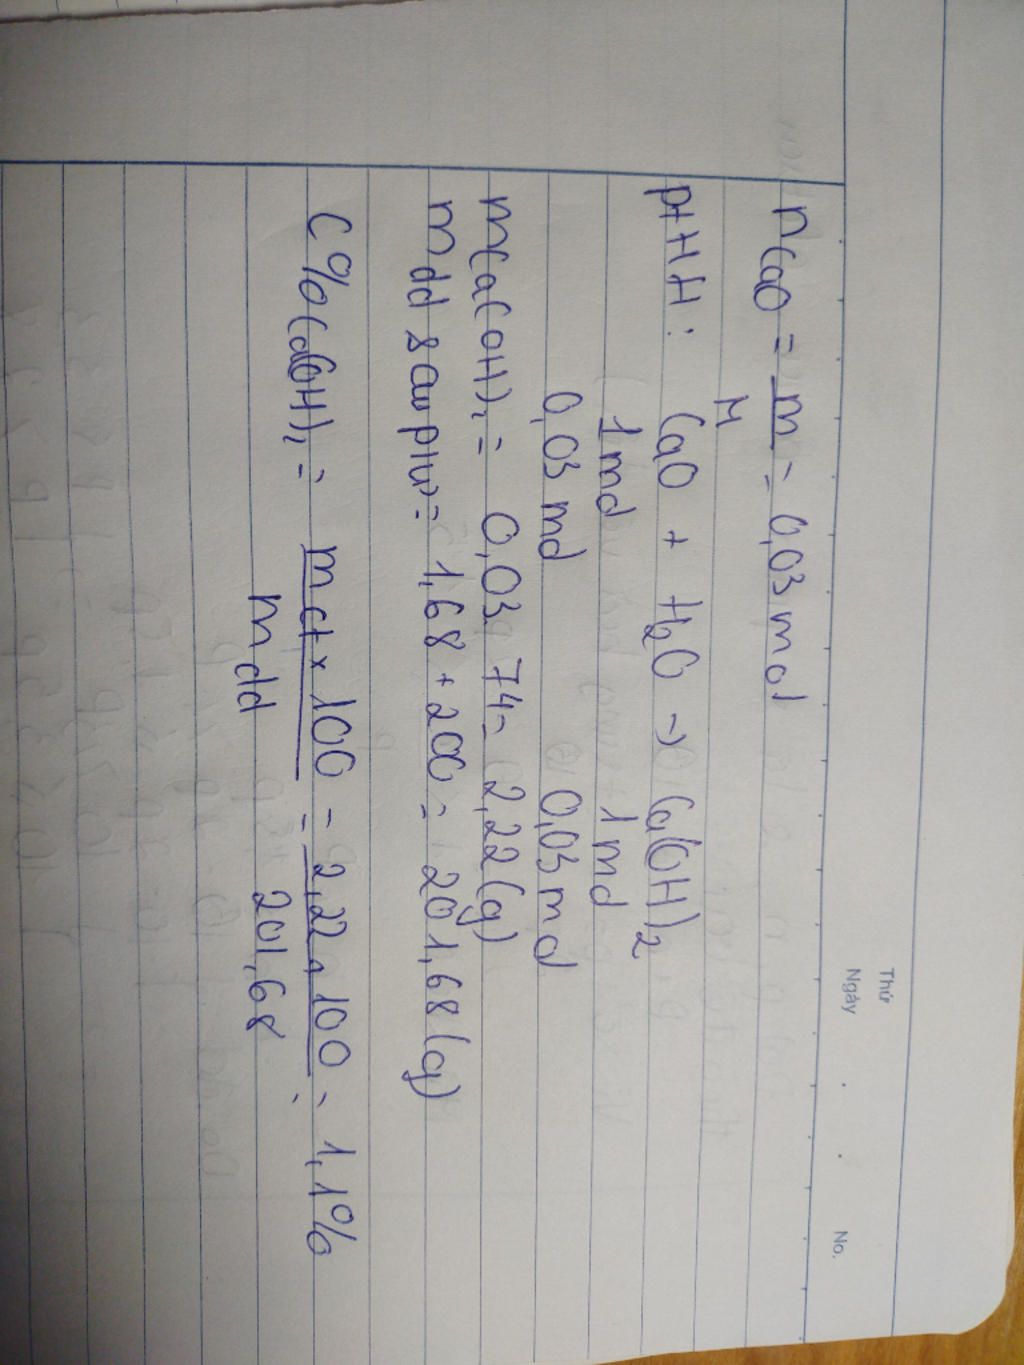 Thứ
Ngày . . No.
nCaO = m = 0,03 mol
M
ptHH : CaO + H₂O → Ca(OH)₂
1 mol 1 mol
0,03 mol 0,03 mol
mCa(OH)₂ = 0,03. 74 = 2,22 (g)
mdd sau plư = 1,68 + 200 = 201,68 (g)
C% Ca(OH)₂ = mct × 100 = 2,22 × 100 = 1,1%
mdd 201,68